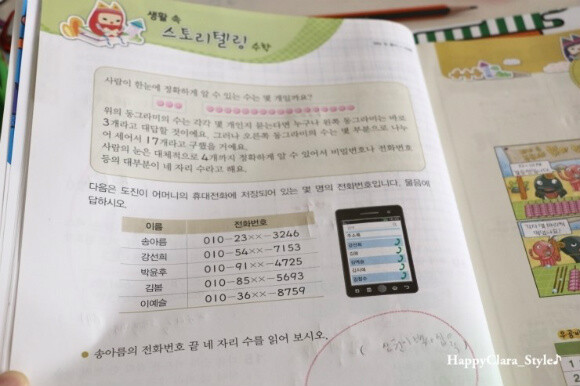 생활 속
스토리텔링 수학
사람이 한눈에 정확하게 알 수 있는 수는 몇 개일까요?
위의 동그라미의 수는 각각 몇 개인지 묻는다면 누구나 왼쪽 동그라미는 바로
3개라고 대답할 것이에요. 그러나 오른쪽 동그라미의 수는 몇 부분으로 나누
어 세어서 17개라고 구했을 거예요.
사람의 눈은 대체적으로 4개까지 정확하게 알 수 있어서 비밀번호나 전화번호
등의 대부분이 네 자리 수라고 해요.
다음은 도진이 어머니의 휴대전화에 저장되어 있는 몇 명의 전화번호입니다. 물음에
답하시오.
이름 전화번호
송아름 010-23××-3246
강선희 010-54××-7153
박윤후 010-91××-4725
김봄 010-85××-5693
이예슬 010-36××-8759
강선희
송아름의 전화번호 끝 네 자리 수를 읽어 보시오.
HappyClara_Style♪